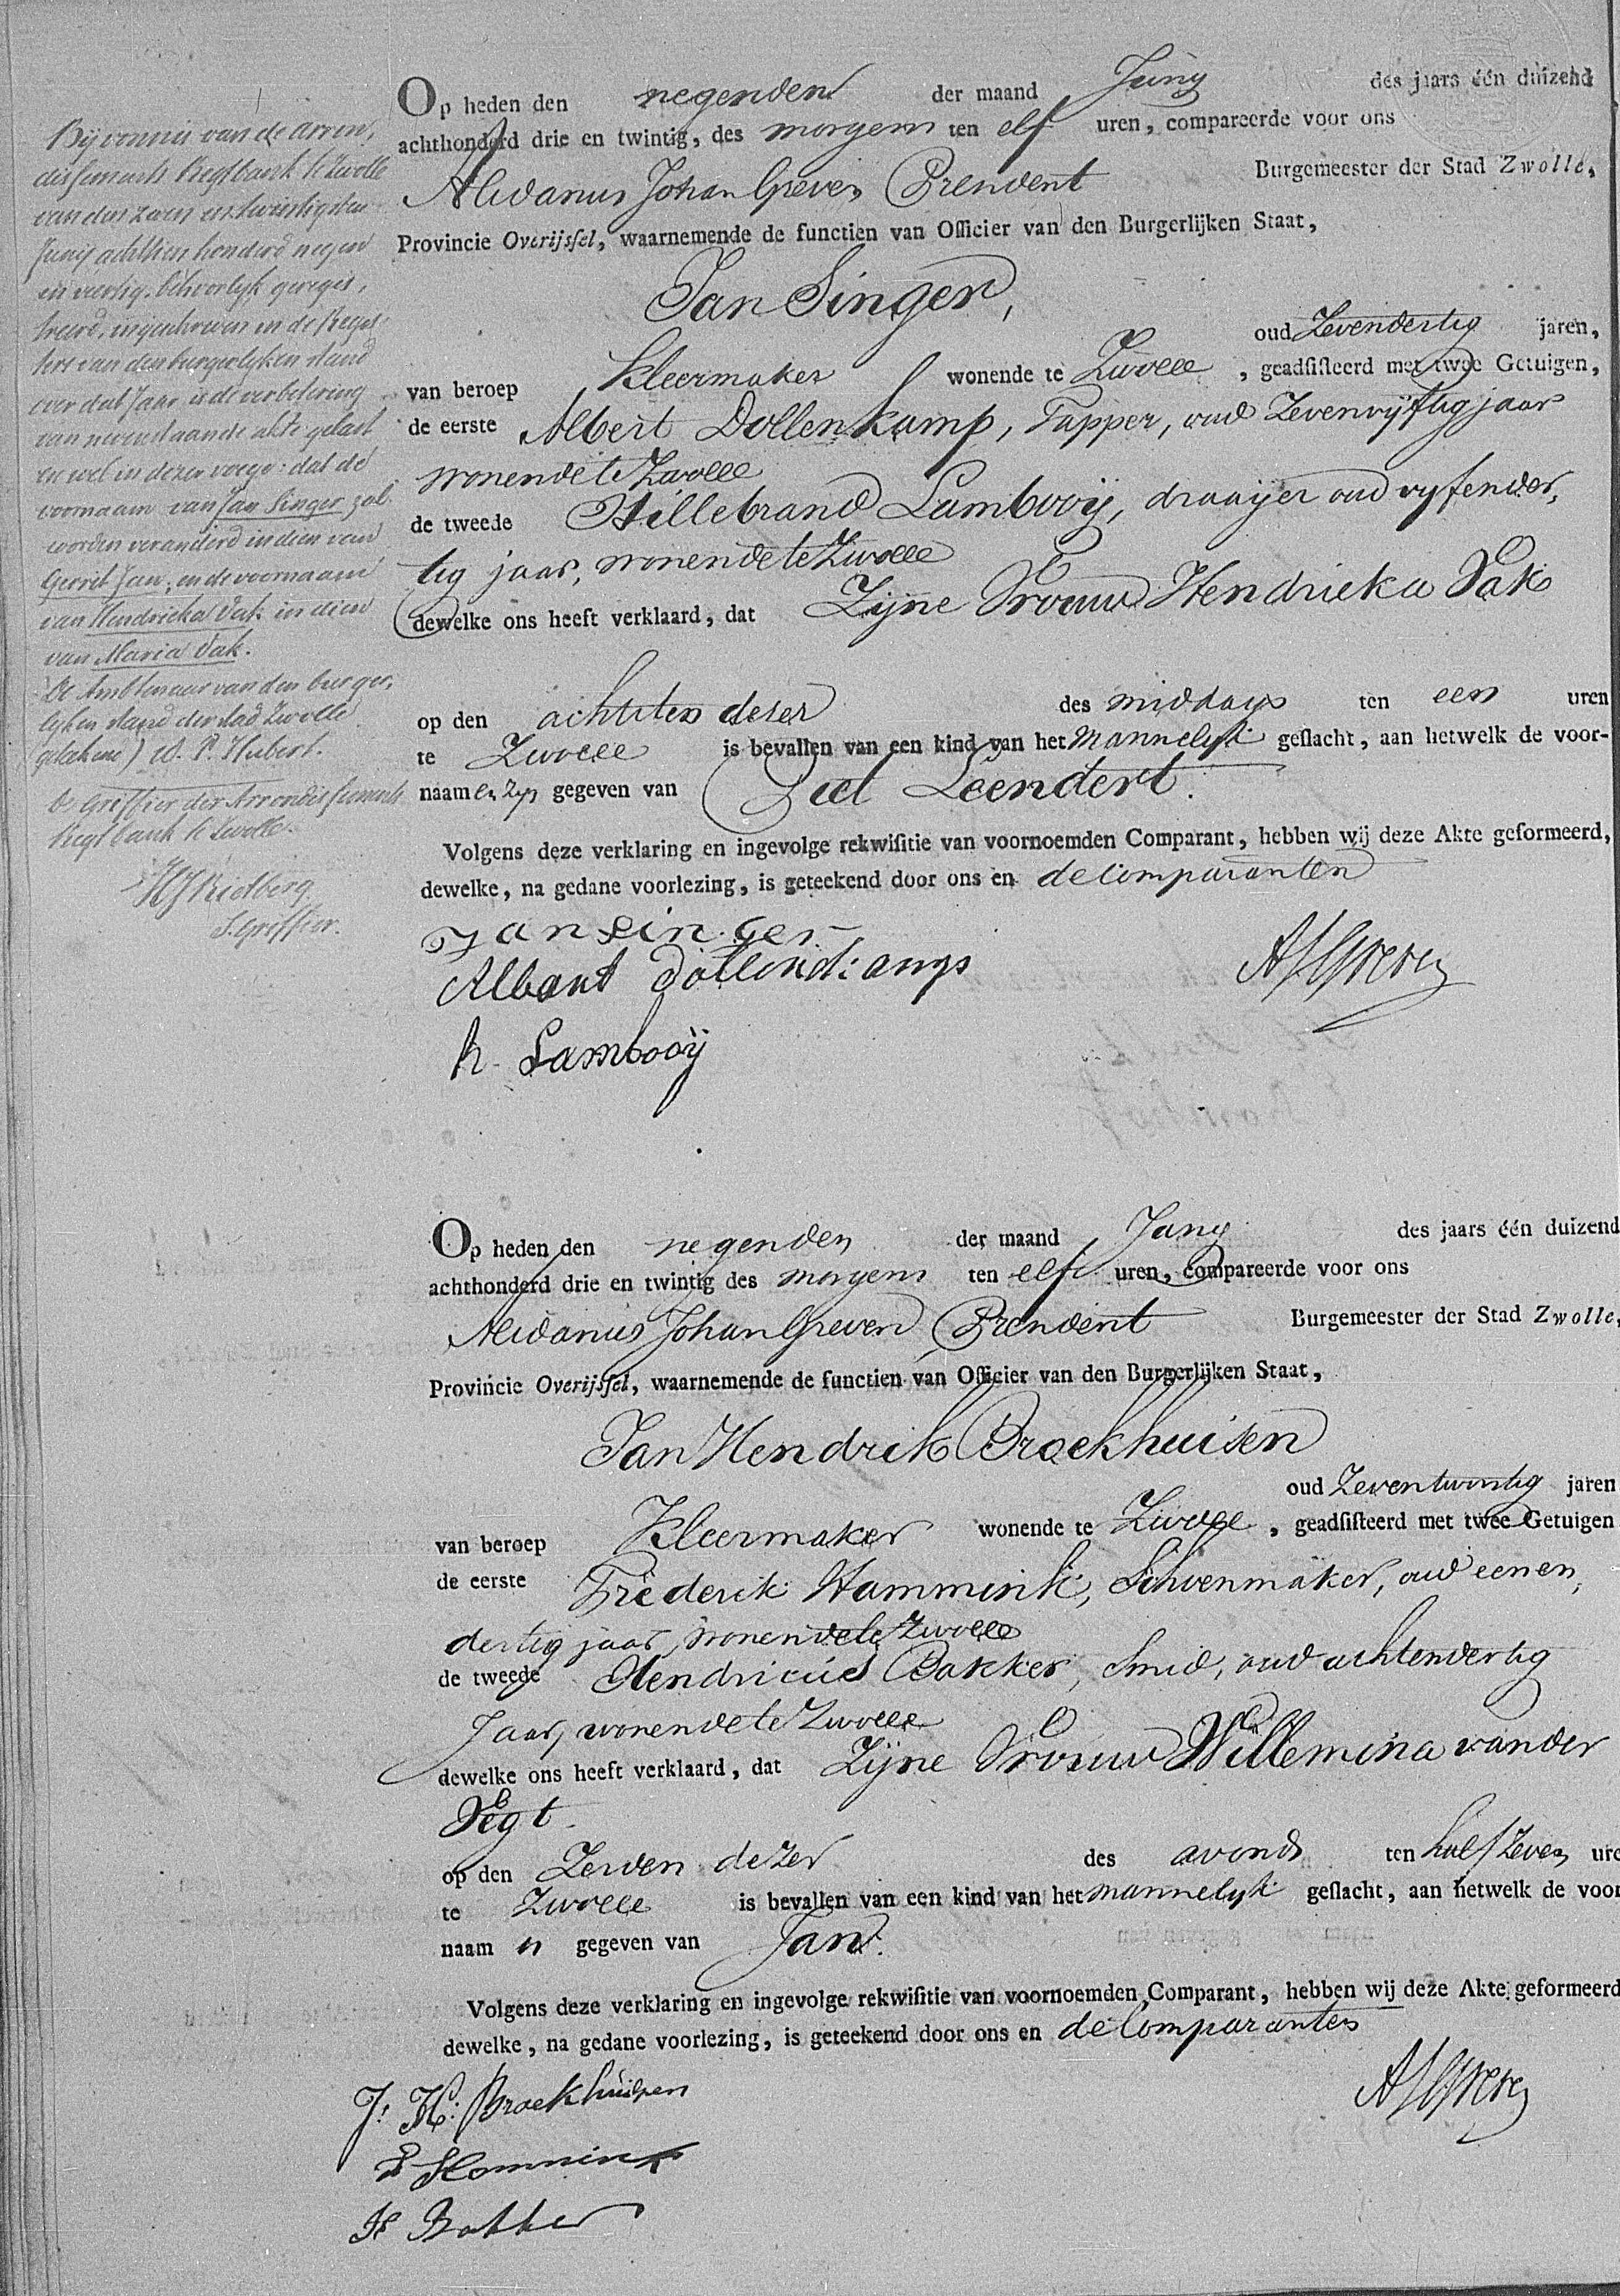 Op heden den negenden der maand Juny des jaars één duizend
achthonderd drie en twintig, des morgens ten elf uren, compareerde voor ons
Alidanus Johan Greven President Burgemeester der Stad Zwolle,
Provincie Overijssel, waarnemende de functien van Officier van den Burgerlijken Staat,
Jan Singer,
oud Zevendertig jaren,
van beroep Kleermaker wonende te Zwolle, geadsisteerd met twee Getuigen,
de eerste Albert Dollenkamp, Tapper, oud Zevenvyftig jaar
wonende te Zwolle
de tweede Hillebrand Lambooij, draaijer oud vyfender,
tig jaar, wonende te Zwolle
dewelke ons heeft verklaard, dat Zijne Vrouw Hendrieka Vak
op den achtsten deser des middags ten een uren
te Zwolle is bevallen van een kind van het mannelyk geslacht, aan hetwelk de voor-
naamen zyn gegeven van Piet Leendert.
Volgens deze verklaring en ingevolge rekwisitie van voornoemden Comparant, hebben wij deze Akte geformeerd,
dewelke, na gedane voorlezing, is geteekend door ons en de Comparanten
Jan Singer
Albart
AJGreven
h. Lambooÿ
Bij vonnis van de Arron,
dissements Regtbank te Zwolle
van den zeven en twintigsten
Junij achttien honderd negen
en veertig, behoorlyk gereges,
treerd, ingeschreven in de Regis
ters van den burgerlyken stand
over dat jaar is de verbetering
van nevenstaande akte gelast
en wel in dezer voege: dat de
voornaam van Jan Singer zal
worden veranderd in dien van
Gerrit Jan, en de voornaam
van Hendrieka Vak in dien
van Maria Vak.
De Ambtenaar van den burger,
lyken stand der stad Zwolle
(getekend) W. P. Hubert.
De Griffier der Arrondissements
Regtbank te Zwolle.
Ridberg
S. Griffier.
Op heden den negenden der maand Juny des jaars één duizend
achthonderd drie en twintig des morgens ten elf uren, compareerde voor ons
Alidanus Johan Greven President Burgemeester der Stad Zwolle,
Provincie Overijssel, waarnemende de functien van Officier van den Burgerlijken Staat,
Jan Hendrik Broekhuisen
oud Zeventwintig jaren
van beroep Kleermaker wonende te Zwolle, geadsisteerd met twee Getuigen
de eerste Frederik Hammink, Schoenmaker, oud eenen,
dertig jaar, wonende te Zwolle
de tweede Hendricus Bakker, Smid, oud achtendertig
Jaar, wonende te Zwolle
dewelke ons heeft verklaard, dat Zijne Vrouw Willemina van der
Vegt
op den Zeven dezer des avonds ten half Zeven ure
te Zwolle is bevallen van een kind van het mannelyk geslacht, aan hetwelk de voor
naam is gegeven van Jan.
Volgens deze verklaring en ingevolge rekwisitie van voornoemden Comparant, hebben wij deze Akte geformeerd
dewelke, na gedane voorlezing, is geteekend door ons en de Comparanten
J: H: Broekhuisen
AJGreven
F Hammink
H Bakker